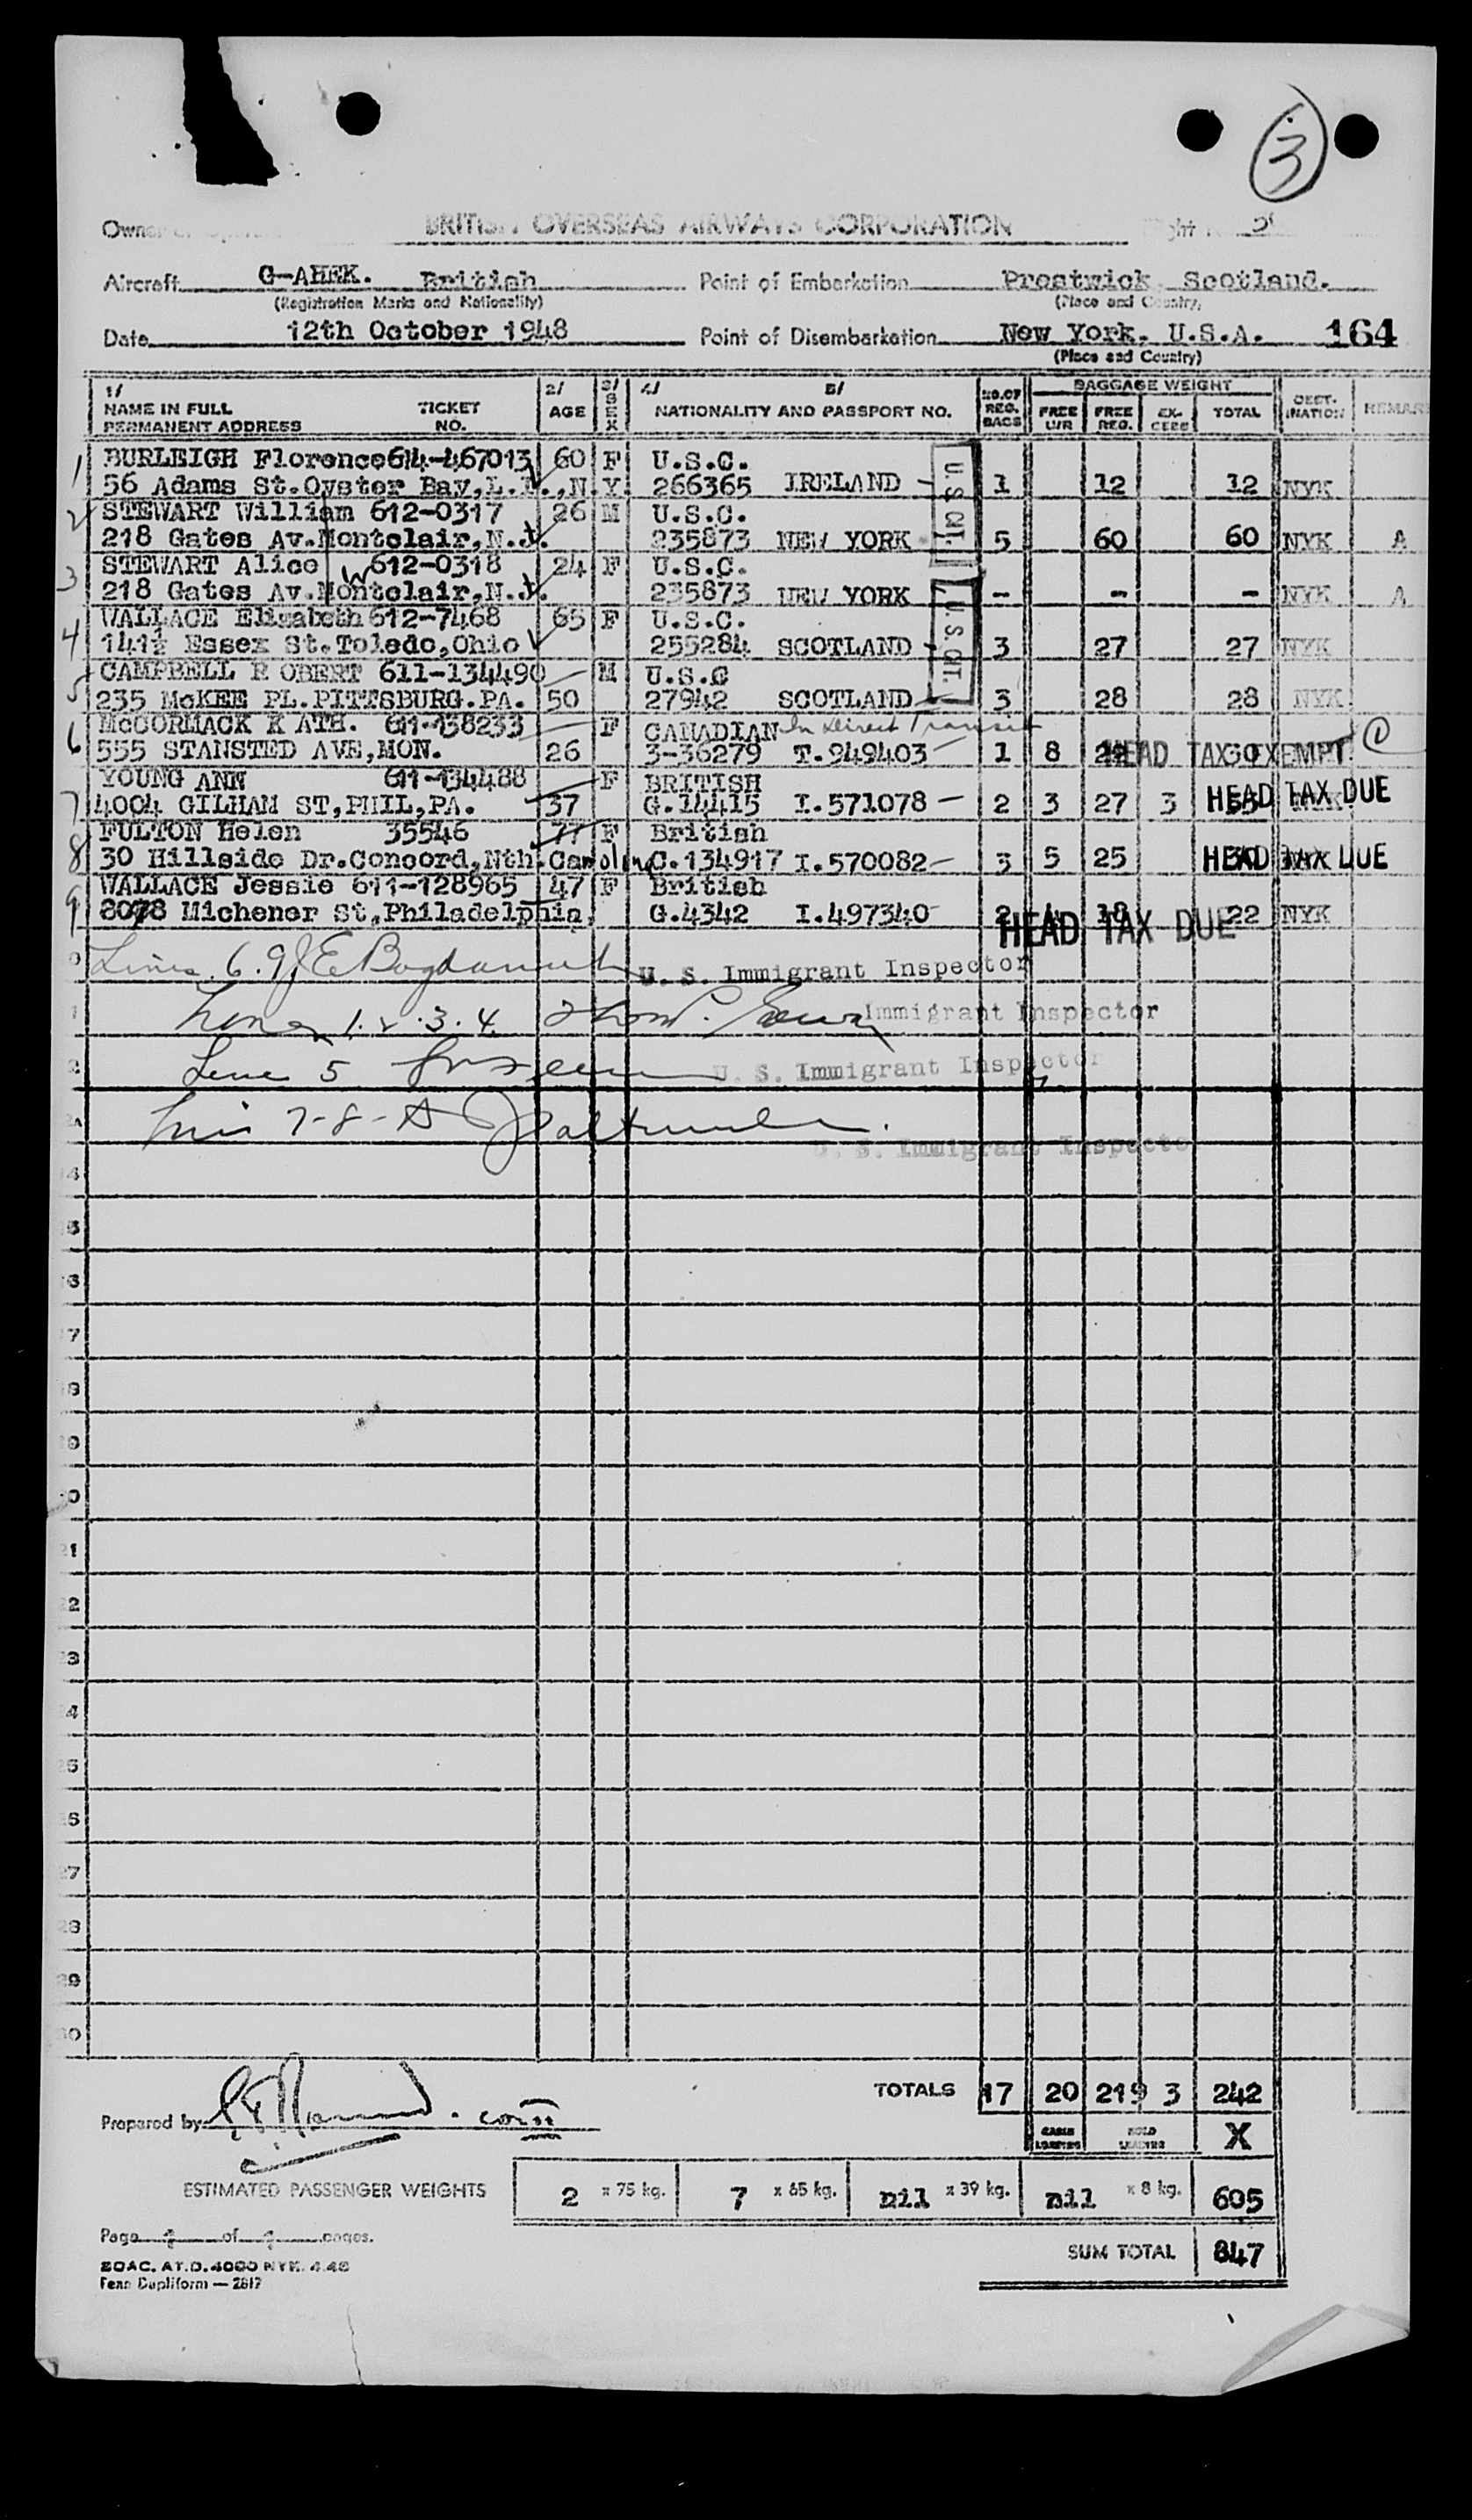 3
BRITISH OVERSEAS AIRWAYS CORPORATION
Aircraft G-AHEK. British Point of Embarkation Prestwick, Scotland.
(Registration Marks and Nationality) (Place and Country)
Date 12th October 1948 Point of Disembarkation New York, U.S.A. 164
(Place and Country)
1/ 2/ 3/ 4/ 5/ NO.OF REG. BAGS BAGGAGE WEIGHT
NAME IN FULL TICKET AGE SEX NATIONALITY AND PASSPORT NO. FREE FREE EX- TOTAL DEST- REMAR
PERMANENT ADDRESS NO. REG. CESS INATION
1 BURLEIGH Florence 614-467013 60 F U.S.C.
56 Adams St.Oyster Bay,L.I.,N.Y. 266365 IRELAND 1 12 12 NYK
2 STEWART William 612-0317 26 M U.S.C.
218 Gates Av.Montclair,N.J. 235873 NEW YORK 5 60 60 NYK A
3 STEWART Alice 612-0318 24 F U.S.C.
218 Gates Av.Montclair,N.J. 235873 NEW YORK - - - NYK A
4 WALLACE Elizabeth 612-7468 65 F U.S.C.
141½ Essex St.Toledo,Ohio 255284 SCOTLAND 3 27 27 NYK
U.S. CIT.
U.S. CIT.
5 CAMPBELL R OBERT 611-134490 M U.S.C
235 McKEE PL.PITTSBURG.PA. 50 27942 SCOTLAND 3 28 28 NYK
6 McCORMACK K ATH. 611-138233 F CANADIAN In Direct Transit
555 STANSTED AVE,MON. 26 3-36279 T.949403 1 8 22 30 HEAD TAX EXEMPT
7 YOUNG ANN 611-134488 F BRITISH
4004 GILHAM ST,PHIL,PA. 37 G.14415 I.571078 2 3 27 3 HEAD TAX DUE
8 FULTON Helen 35546 F British
30 Hillside Dr.Concord,Nth.Carolina C.134917 I.570082 3 5 25 HEAD TAX DUE
9 WALLACE Jessie 611-128965 47 F British
8078 Michener St,Philadelphia, G.4342 I.497340 2 18 22 NYK
HEAD TAX DUE
Lines 6.9 U. S. Immigrant Inspector
Lines 1.2.3.4 Immigrant Inspector
Line 5 U. S. Immigrant Inspector
Lines 7-8- U. S. Immigrant Inspecto
TOTALS 17 20 219 3 242
Prepared by
CABIN LOADING HOLD LOADING X
ESTIMATED PASSENGER WEIGHTS 2 x 75 kg. 7 x 65 kg. nil x 39 kg. nil x 8 kg. 605
Page of pages.
SUM TOTAL 847
BOAC. AT.D.4000 NYK. 4.48
Fenn Dupliform — 2817